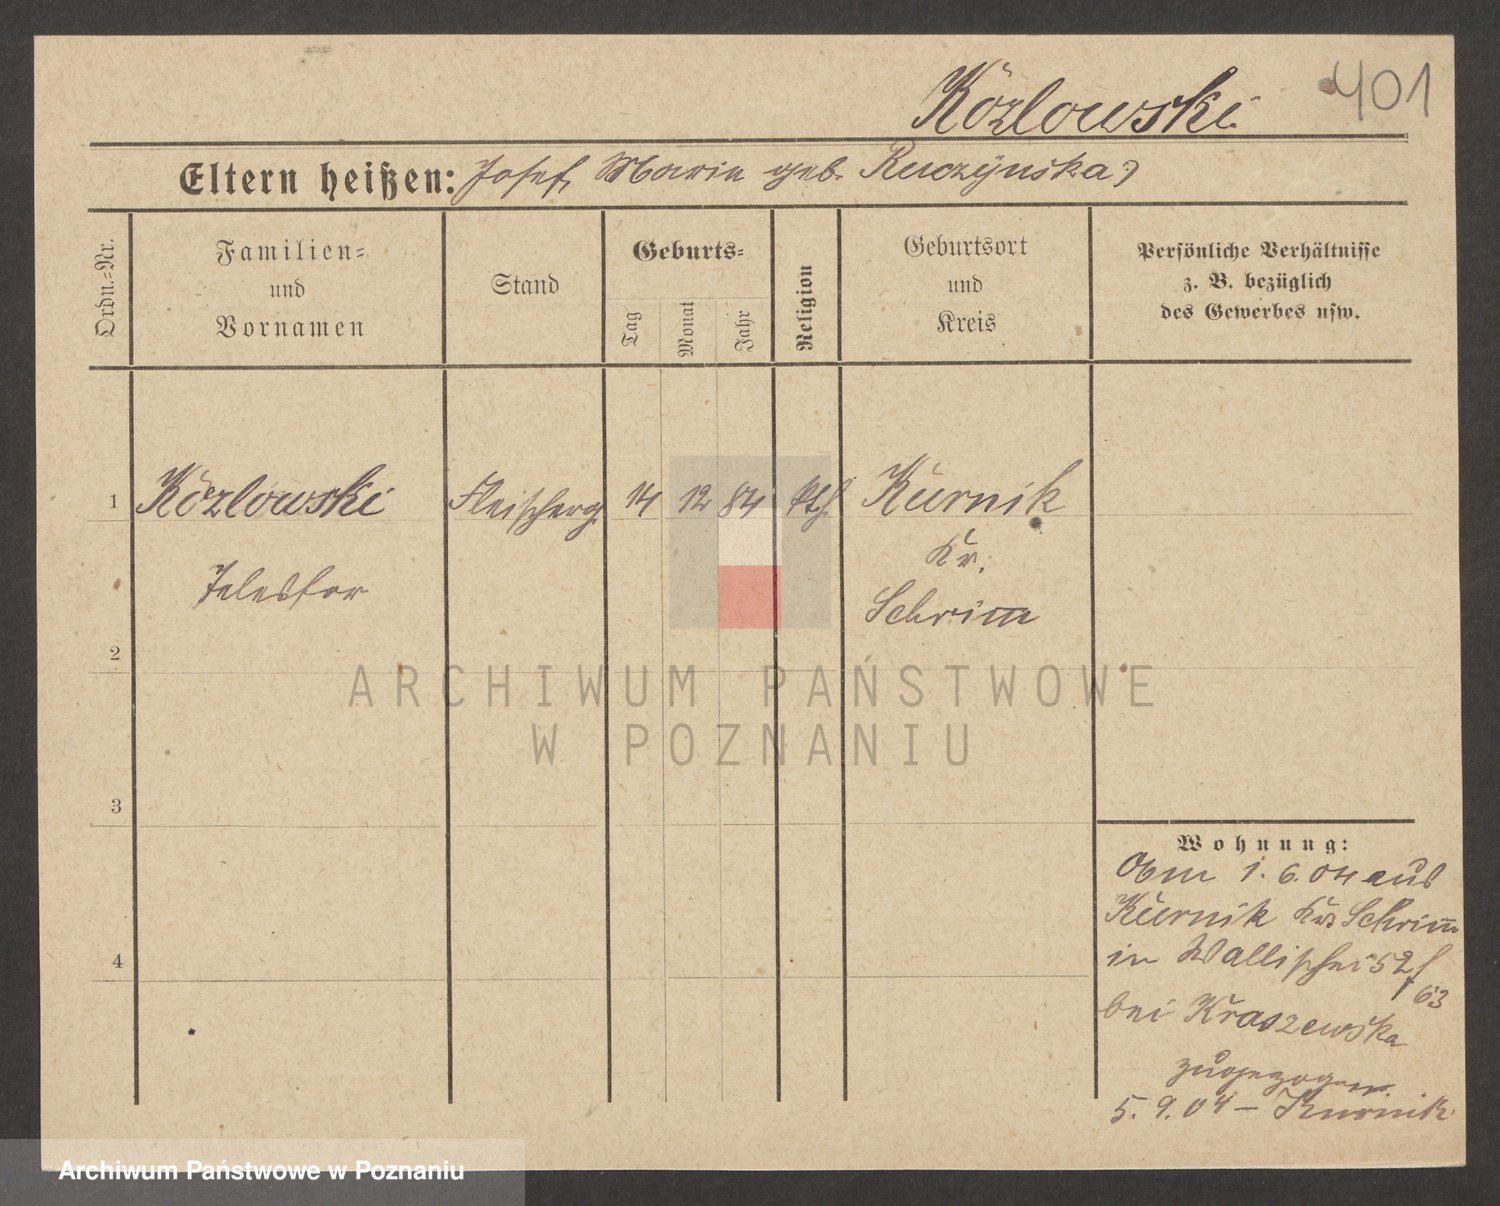 Kozlowski 401
Eltern heißen: Josef, Maria geb. Ruczynska
Ordn.-Nr.
Familien-
und
Vornamen
Stand
Geburts-
Tag
Monat
Jahr
Religion
Geburtsort
und
Kreis
Persönliche Verhältnisse
z. B. bezüglich
des Gewerbes usw.
1 Kozlowski Fleischerg. 14 12 84 kth. Kurnik
Kr.
Telesfor Schrimm
2
ARCHIWUM PAŃSTWOWE
W POZNANIU
3
Wohnung:
1. 6. 04 aus
Kurnik Kr. Schrimm
4
in Wallischei 52/63
bei Kraszewska
zugezogen.
5. 9. 04 – Kurnik
Archiwum Państwowe w Poznaniu